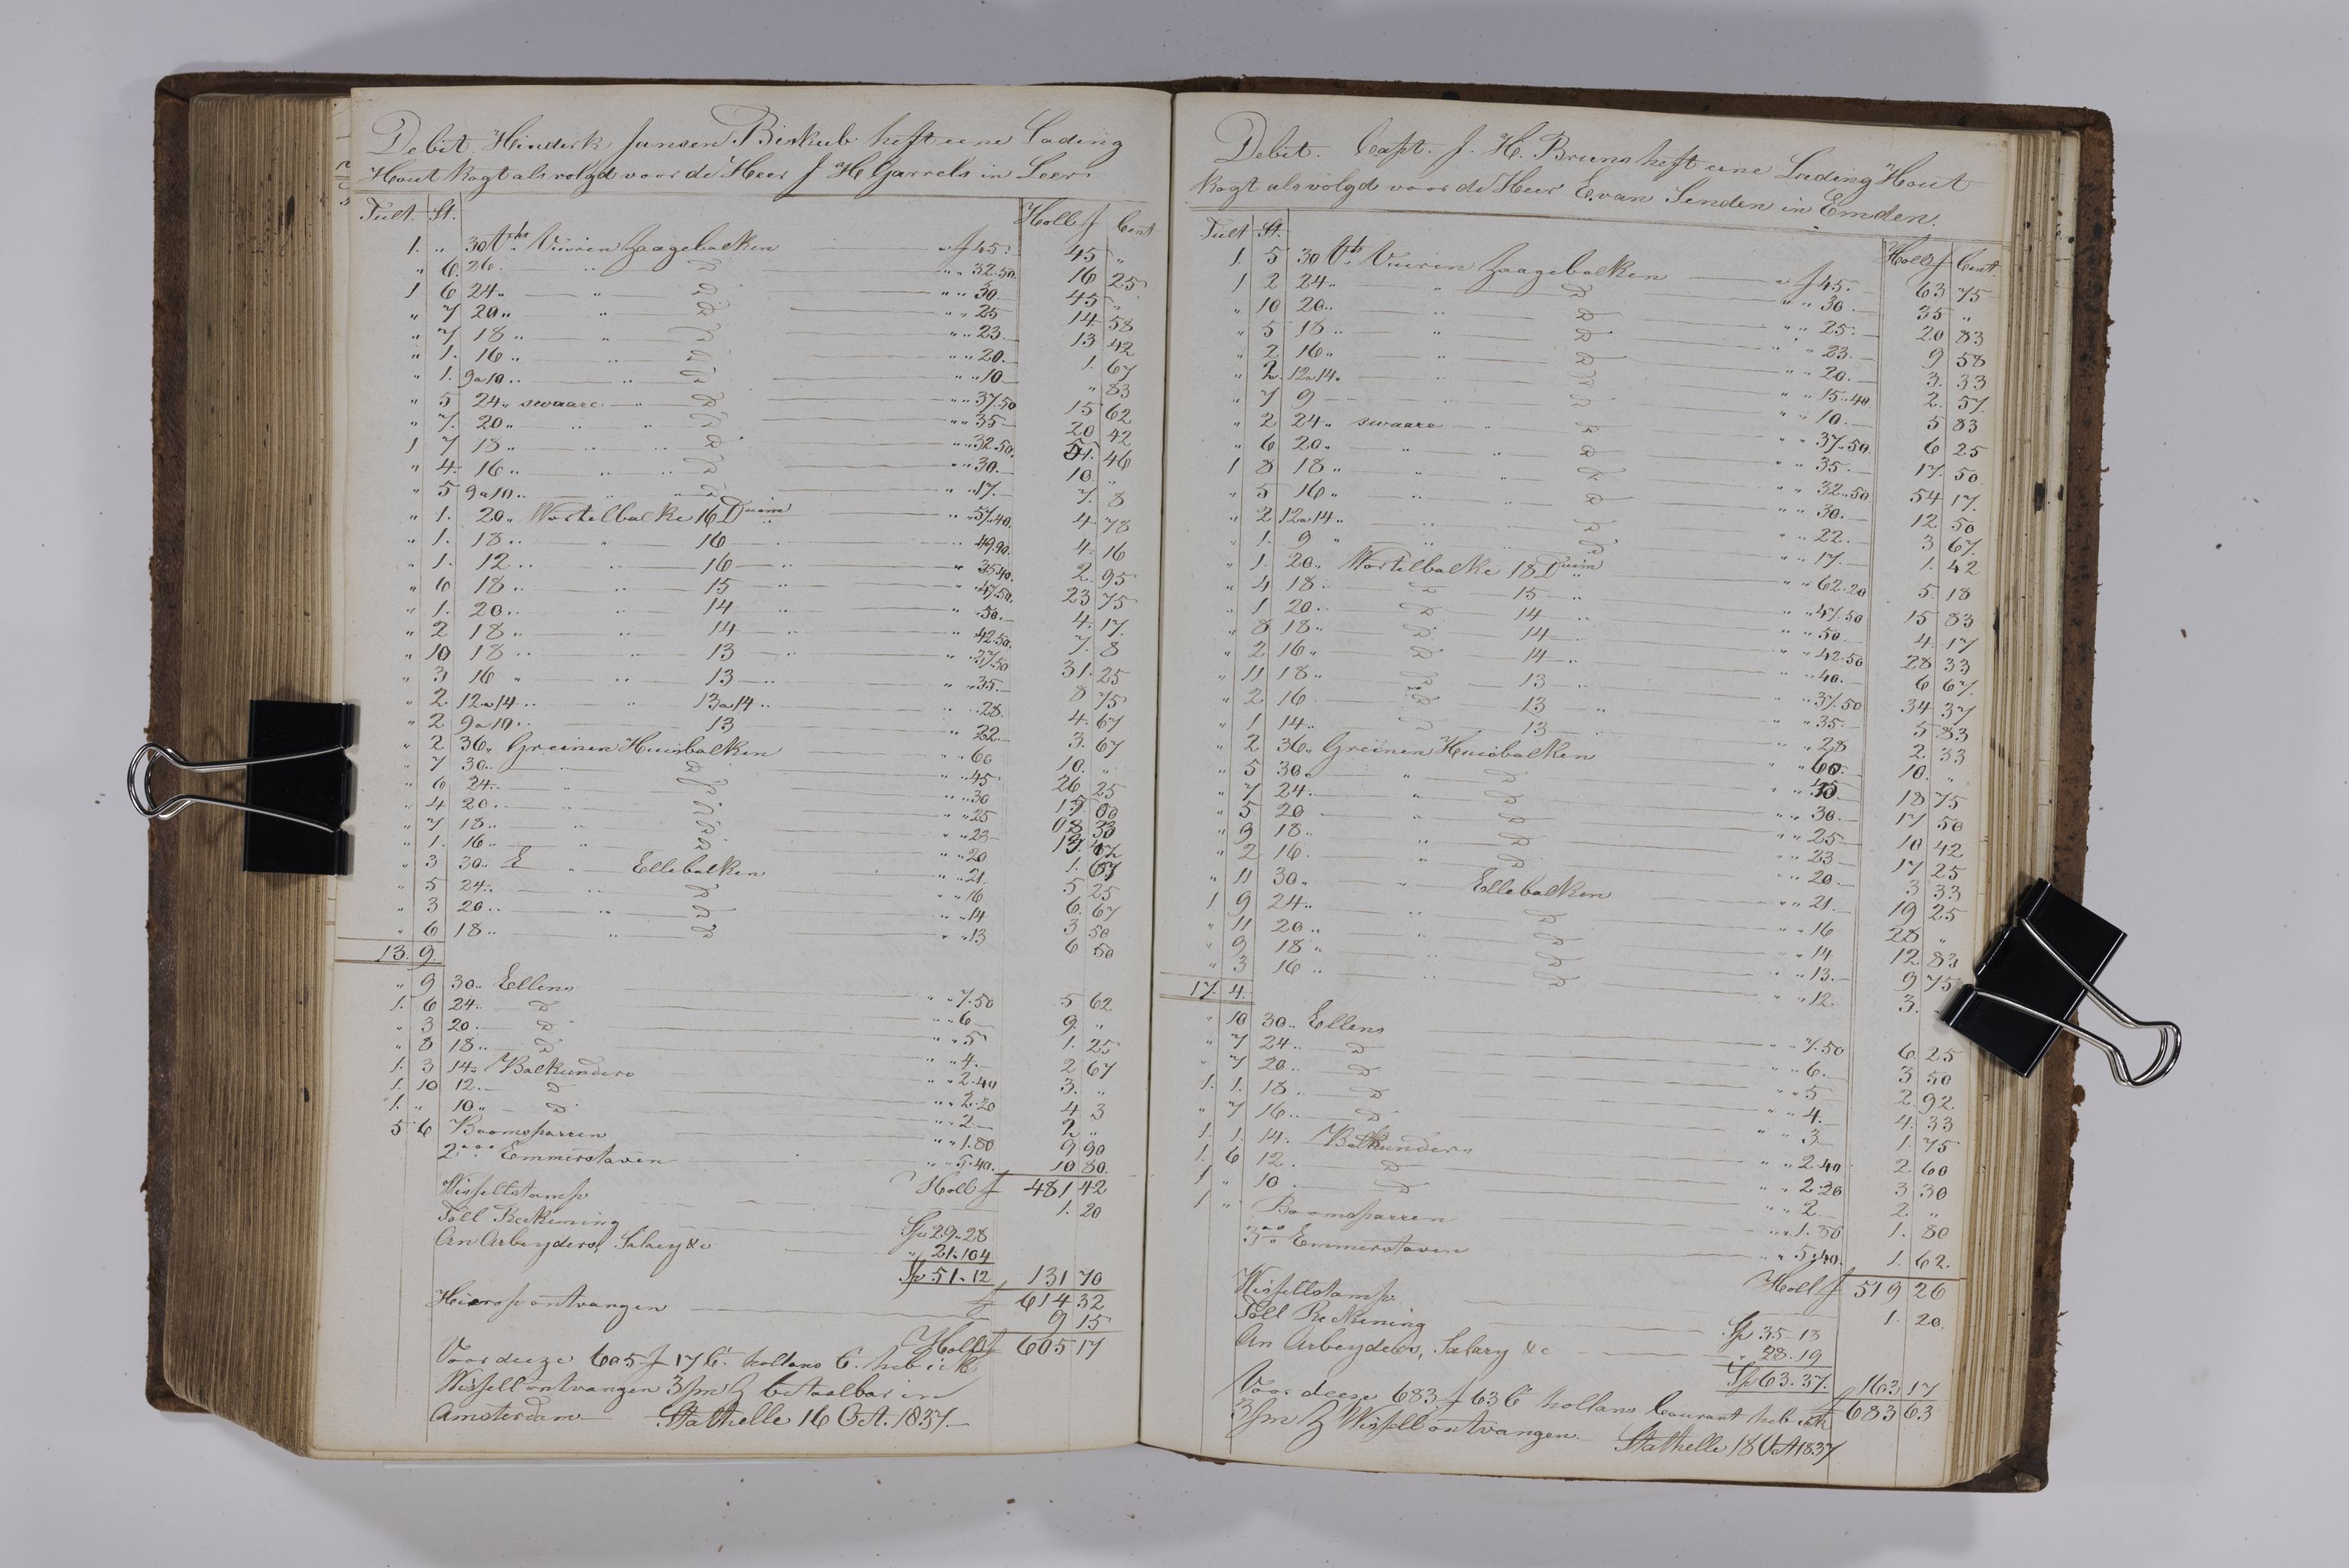 Debit. Hinderk Jansen Biskub heft eene Lading
Hout kogt als volgd voor de Heer J H Garrels in Leer.
Tult. St. Holl f Cent
1. „ 30 Vts Vuiren Zaagebalken „ f 45. 45 „
„ 6. 26. „ D „ „ 32.50. 16 25
1 6 24 „ „ D „ „ 30. 45 „
„ 7 20 „ „ D „ „ 25 14 58
„ 7 18 „ „ D „ „ 23 13 42
„ 1. 16 „ „ D „ „ 20. 1. 67
„ 1. 9 a 10 „ „ D „ „ 10 „ 83
„ 5 24 „ swaare „ D „ „ 37.50 15 62
„ 7. 20 „ „ „ D „ „ 35 20 42
1 7 18 „ „ „ D „ „ 32.50. 51. 46
„ 4. 16 „ „ „ D „ „ 30. 10 „
„ 5 9 a 10 „ „ „ D „ „ 17. 7. 8
„ 1. 20 „ Wortelbalke 16 Duim „ 57.40. 4 78
„ 1. 18 „ „ 16 „ „ 49.90. 4. 16
„ 1. 12 „ „ 16 „ „ 35.40. 2. 95
„ 6 18 „ „ 15 „ „ 47.50. 23 75
„ 1. 20 „ „ 14 „ „ 50. 4. 17.
„ 2 18 „ „ 14 „ „ 42.50. 7. 8
„ 10 18 „ „ 13 „ „ 37.50 31. 25
„ 3 16 „ „ 13 „ „ 35. 8 75
„ 2 12 a 14 „ „ 13 a 14 „ „ 28. 4. 67
„ 2 9 a 10 „ 13 „ 22. 3. 67
„ 2 36 „ Greinen Huisbalken „ „ 60 10. „
„ 7 30 „ „ D „ „ 45 26 25
„ 6 24 „ „ D „ „ 30 15 00
„ 4 20 „ „ D „ „ 25 08 33
„ 7 18 „ „ D „ „ 23 13 42
„ 1. 16 „ „ D „ „ 20 1. 67
„ 3 30 „ „ Ellebalken „ „ 21. 5 25
„ 5 24 „ „ D „ „ 16 6. 67
„ 3 20 „ „ D „ „ 14 3 50
„ 6 18 „ „ D „ „ 13 6 50
13. 9.
„ 9 30 „ Ellens „ „ 7.50 5 62
1. 6 24 „ D „ „ 6 9. „
„ 3 20 „ D „ „ 5 1. 25
„ 8 18 „ D „ „ 4. 2 67
1. 3 14 „ Balkunders „ „ 2.40 3. „
1. 10 12 „ D „ „ 2.20 4 3
1. „ 10 „ D „ „ 2 2 „
5 6 Boomsparren „ „ 1.80 9 90
2°°° Emmerstaven „ „ 5.40. 10 80.
Holl f 481 42
Wisseltstamp 1. 20
Toll Reckening Sp 29 „ 28
An Arbeyders, Salary &c „ 21.104
Sp 51. 12 131 70
f 614 32
Hierop ontvangen 9 15
Holl f 605 17
Voor deeze 605 f 17 C. hollans C. heb ick
Wissell ontvangen 3 betaalbar in
Amsterdam Stathelle 16 Oct. 1837.
Debit. Capt. J. H. Bruns heft eene Lading Hout
kogt als volgd voor de Heer E. van Senden in Emden.
Tult St. Holl f Cent.
1. 5 30 Vt Vuiren Zaagebalken „ f 45. 63 75
1 2 24 „ „ D „ „ 30 35 „
„ 10 20 „ „ D „ „ 25. 20 83
„ 5 18 „ „ D „ „ 23. 9 58
„ 2 16 „ „ D „ „ 20. 3. 33
„ 2. 12 a 14. „ D „ „ 15.40. 2. 57.
„ 7 9 „ D „ „ 10. 5 83
„ 2 24 „ swaare „ D „ „ 37.50. 6 25
„ 6 20 „ „ „ D „ „ 35. 17. 50
1 8 18 „ „ „ D „ „ 32.50 54 17.
„ 5 16 „ „ „ D „ „ 30. 12 50
„ 2 12 a 14 „ „ „ D „ „ 22. 3 67.
„ 1. 9 „ „ „ D „ „ 17. 1. 42
„ 1. 20 „ Wortelbalke 18 Duim „ „ 62.20 5. 18
„ 4 18 „ D 15 „ „ „ 47.50 15 83
„ 1 20 „ D 14 „ „ „ 50. 4. 17
„ 8 18 „ D 14 „ „ „ 42.50 28 33
„ 2 16 „ D 14 „ „ „ 40. 6. 67.
„ 11 18 „ D 13 „ „ „ 37.50 34 37
„ 2 16 D 13 „ „ „ 35 5 83
„ 1 14 „ D 13 „ „ „ 28 2 33
„ 2 36 „ Greinen Huisbalken „ „ 60. 10. „
„ 5 30. „ D „ „ 45 18 75
„ 7 24. „ D „ „ 30. 17 50
„ 5 20 „ D „ „ 25 10 42
„ 9 18. „ D „ „ 23 17 25
„ 2 16. „ D „ „ 20. 3 33
„ 11 30 „ „ Ellebalken „ „ 21. 19 25
1 9 24 „ „ D „ „ 16 28 „
„ 11 20 „ „ D „ „ 14 12. 83
„ 9 18 „ „ D „ „ 13. 9 75
„ 3 16 „ „ D „ „ 12. 3.
17. 4.
„ 10 30 „ Ellens „ „ 7.50 6. 25
„ 7 24 „ D „ „ 6. 3 50
„ 7 20 „ D „ „ 5 2. 92.
1. 1. 18 „ D „ „ 4. 4. 33
„ 7 16 „ D „ „ 3 1. 75
1. 1. 14. Balkunders „ „ 2.40 2. 60
1. 6 12. D „ „ 2.20 3 30
1 „ 10. D „ „ 2 2 „
1 „ Boomsparren „ „ 1.80 1. 80
3°° Emmerstaven „ „ 5.40. 1. 62.
Holl f 519 26
Wissellstamp. 1. 20.
Toll Reckening Sp 35-13
An Arbeyders, Salary &c „ 28.19
Sp 63.37. 163 17
f 683 63
Voor deese 683 f 63 Ct hollans Courant heb ick
3 Wissell ontvangen. Stathelle 18 Oct 1837